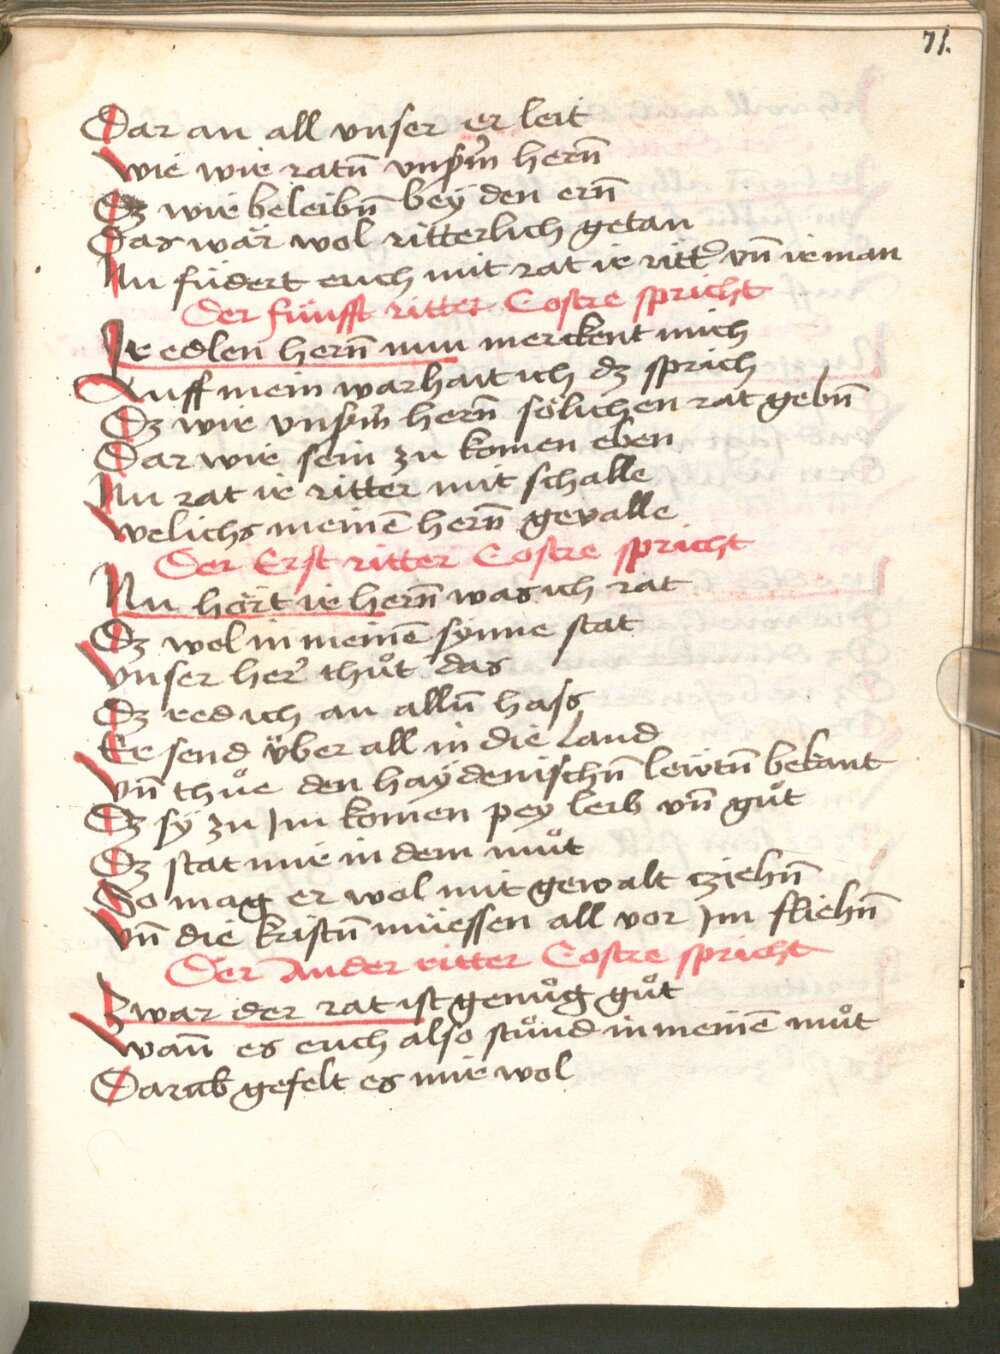 71.
Dar an all vnser er leit
wie wir ratn̄ vnserm hern̄
Dz wir beleibn̄ bey den ern̄
Das wär wol ritterlich getan
Nu fūdert euch mit rat ir ritter vn̄ ir man
Der fünfft ritter Cosdre spricht
Ir edlen hern̄ nun merckent mich
Auff mein warhait ich dz sprich
Dz wir vnserm hern̄ sölichen rat gebn̄
Dar wir sein zu komen eben
Nu rat ir ritter mit schalle
welichs meinē hern̄ gevalle
Der Erst ritter Cosdre spricht
Nu hört ir hern̄ was ich rat
Dz wol in meinē synne stat
vnser her thůt das
Dz red ich an alln̄ hass
Er send über all in die Land
vn̄ thůe den haydenischn̄ lewtn̄ bekant
Dz sy zu Im komen pey leib vn̄ gůt
Dz stat mir in dem můt
So mag er wol mit gewalt cziehn̄
vn̄ die kristn̄ müessen all vor Im fliehn̄
Der Ander ritter Cosdre spricht
Zwar der rat ist genůg gůt
wan̄ es euch also stůnd in meinē můt
Darab gefelt es mir wol